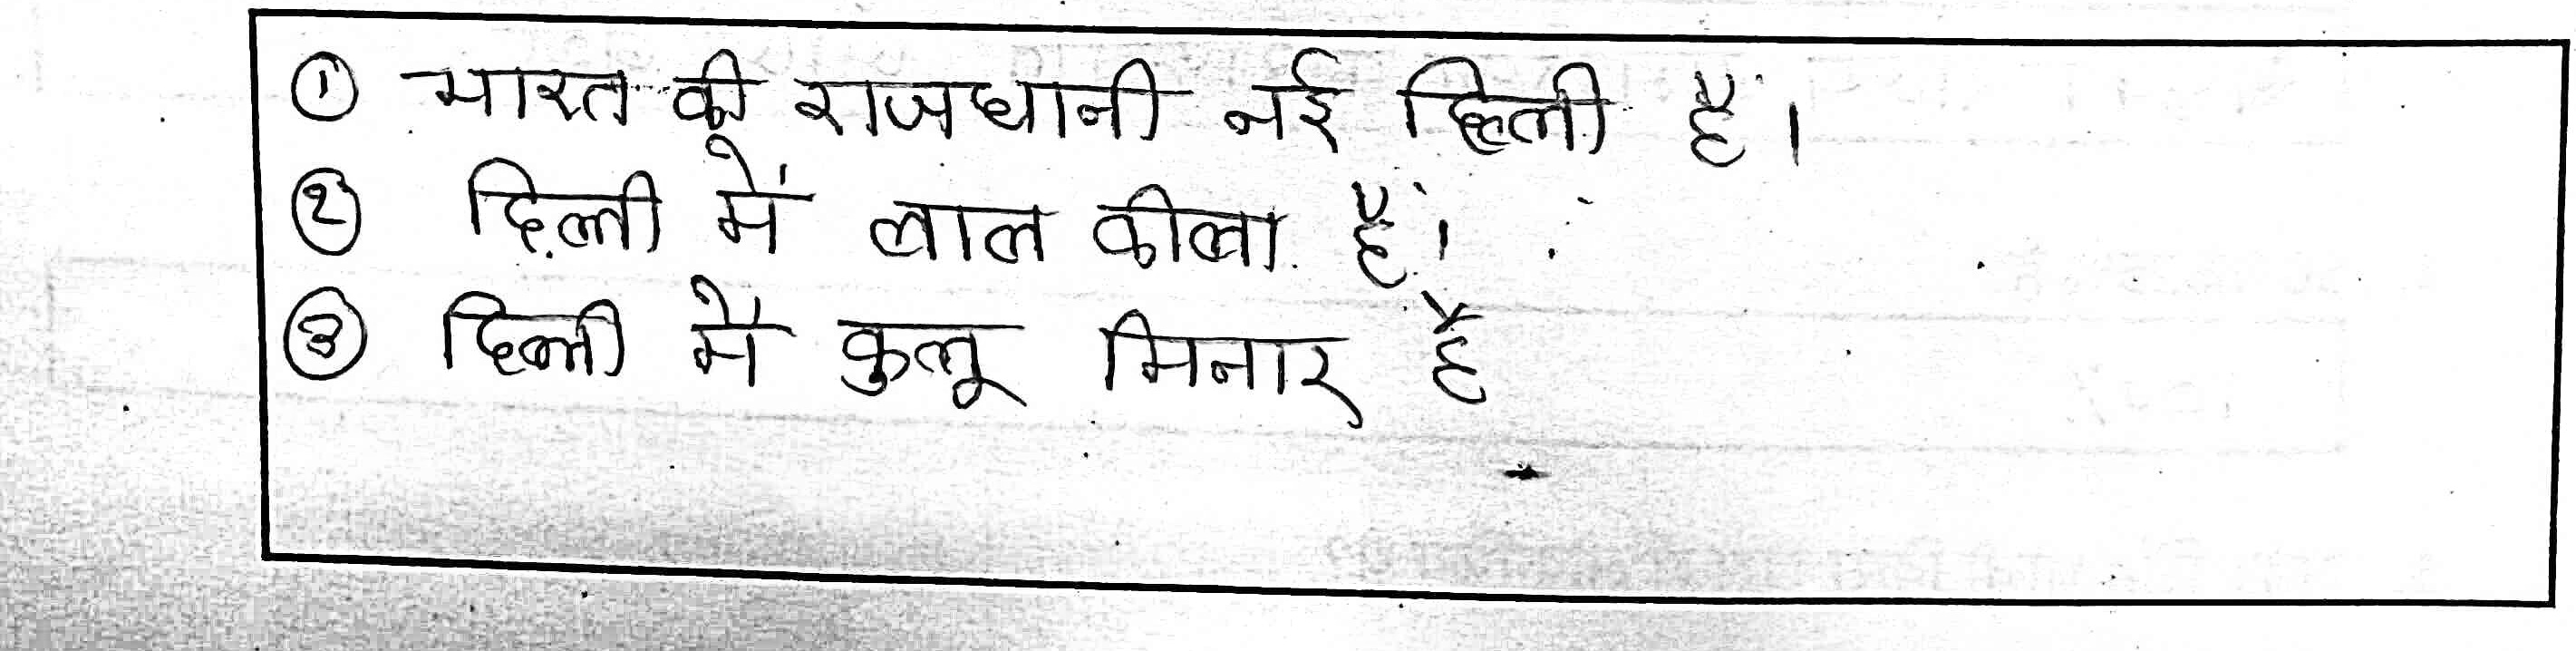 ① भारत की राजधानी नई दिल्ली है।
② दिल्ली में लाल कीला है।
③ दिल्ली मे कुलू मिनार है